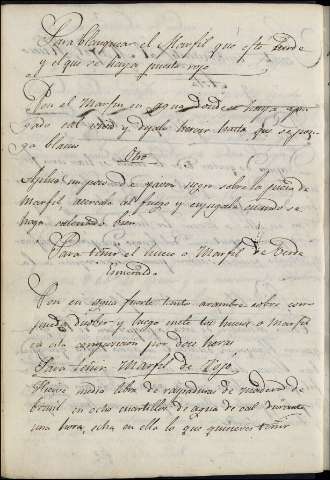 Para blanquear el Marfil que este Verde
y el que se haya puesto rojo
Pon el Marfil en agua donde haya apa-
gado cal viva y dejalo hervir hasta que se pon-
ga blanco
Otro
Aplica un poco de javon negro sobre la pieza de
Marfil, acercala al fuego y enjugala cuando se
haya calentado bien
Para teñir el hueso o Marfil de Verde
Esmeralda
Pon en agua fuerte tanto arambre sobre como
pueda y luego mete tus huesos o Marfil
en esta composicion por doce horas
Para teñir Marfil de Rojo
Hierve media libra de raspaduras de madera de
brasil en ocho cuartillos de agua de cal durante
una hora, echa en ella lo que quisieres teñir